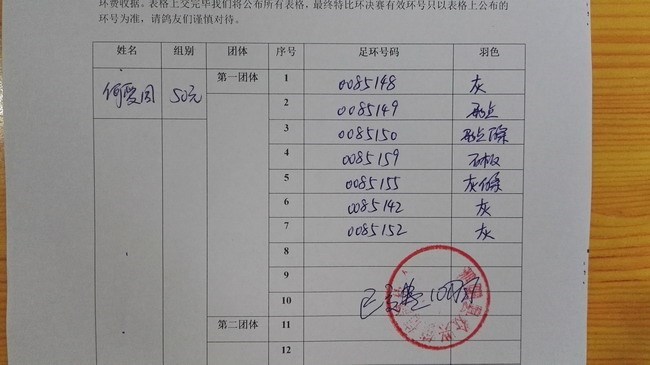 环费收据。表格上交完毕我们将公布所有表格，最终特比环决赛有效环号只以表格上公布的
环号为准，请鸽友们谨慎对待。
姓名 组别 团体 序号 足环号码 羽色
何 50元 第一团体 1 0085148 灰
2 0085149 雨点
3 0085150 雨点条
4 0085159 石板
5 0085155 灰
6 0085142 灰
7 0085152 灰
8
9
10 已
第二团体 11
12